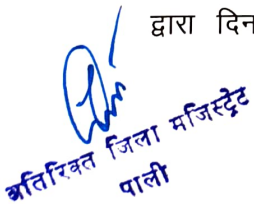 द्वारा दिन
अतिरिक्त जिला मजिस्ट्रेट
पाली